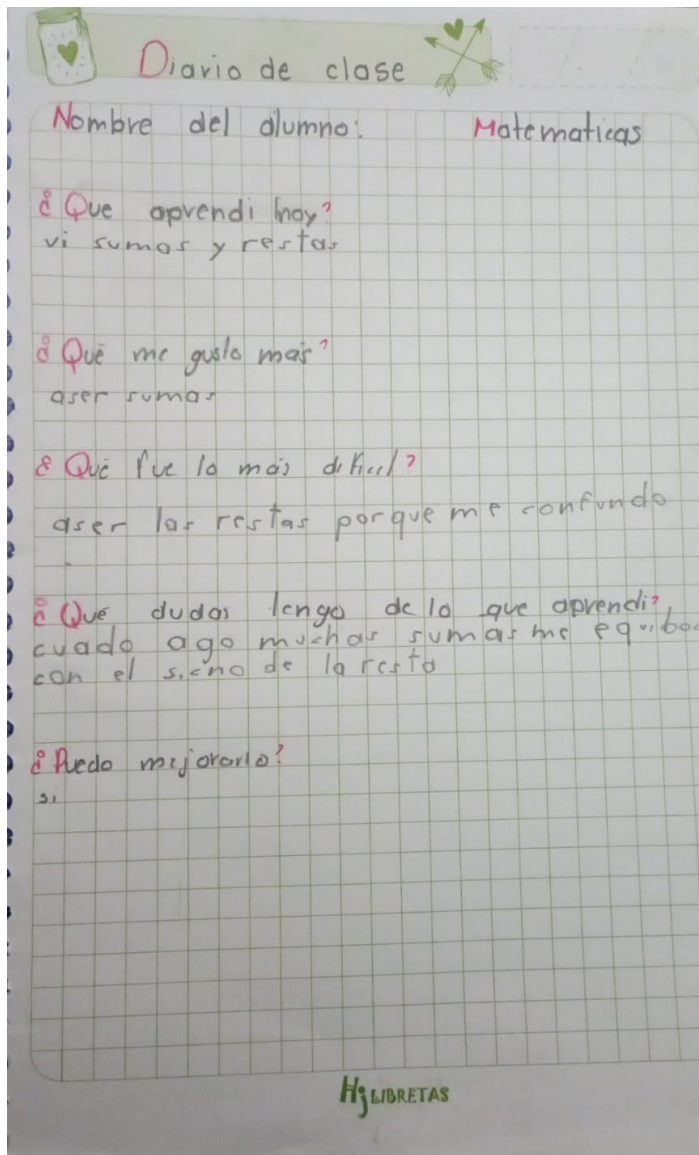 Diario de clase
Nombre del alumno: Matematicas
¿Que aprendi hoy?
vi sumas y restas
¿Qué me gusto más?
aser sumas
¿Qué fue lo más dificil?
aser las restas porque me confundo
¿Que dudas tengo de lo que aprendi?
cuado ago muchas sumas me equiboc
con el sicno de la resta
¿Puedo mejorarlo?
si
Hj LIBRETAS